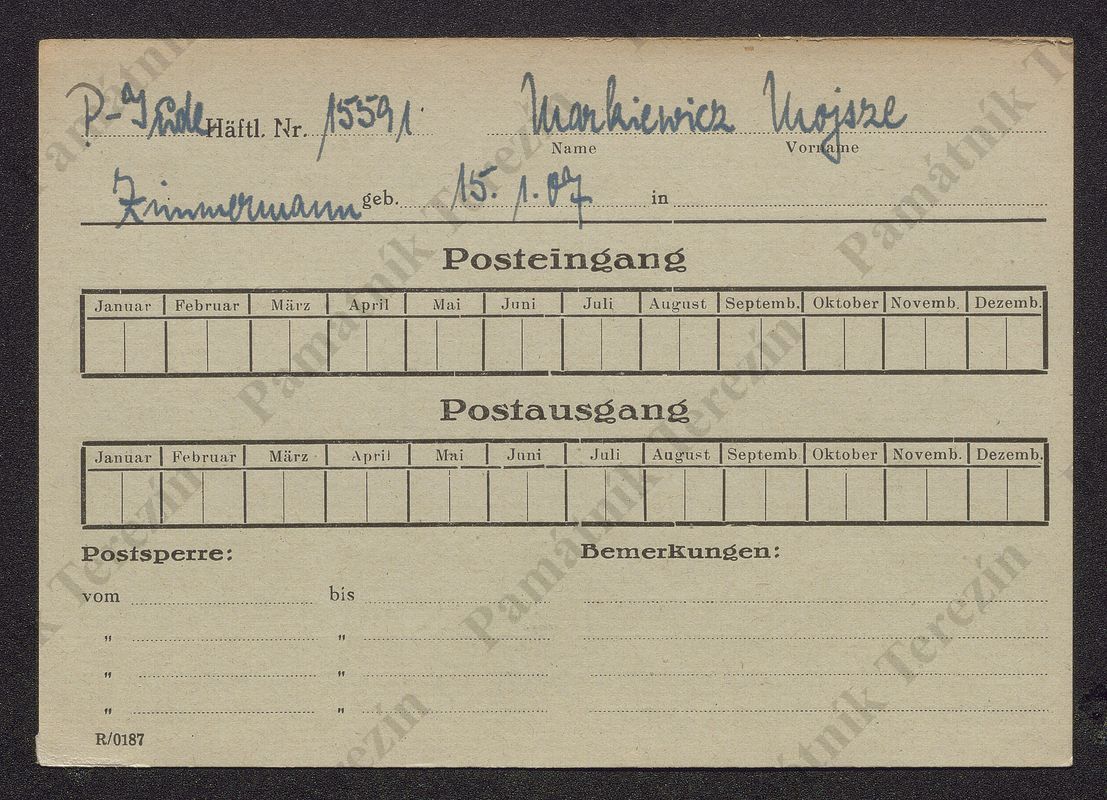 P-Jude Häftl. Nr. 15591 Markiewicz Mojsze
Name Vorname
Zimmermann geb. 15. 1. 07 in
Posteingang
Januar Februar März April Mai Juni Juli August Septemb. Oktober Novemb. Dezemb.
Postausgang
Januar Februar März April Mai Juni Juli August Septemb Oktober Novemb. Dezemb.
Postsperre: Bemerkungen:
vom bis
" "
" "
" "
R/0187
Památník Terezín